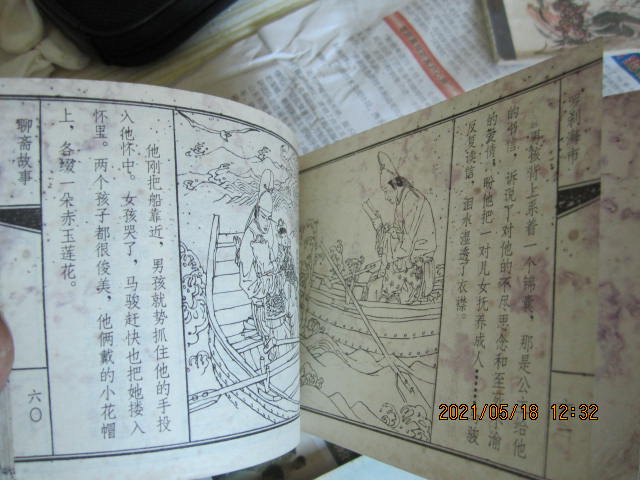 聊斋故事
六〇
他刚把船靠近，男孩就势抓住他的手投
入他怀中。女孩哭了，马骏赶快也把她搂入
怀里。两个孩子都很俊美，他俩戴的小花帽
上，各缀一朵赤玉莲花。
罗刹海市
男孩背上系着一个锦囊，那是公主给他
的书信，诉说了对他的不尽思念和至死不渝
的爱情，盼他把一对儿女抚养成人……骏
反复读信，泪水湿透了衣襟。
2021/05/18 12:32